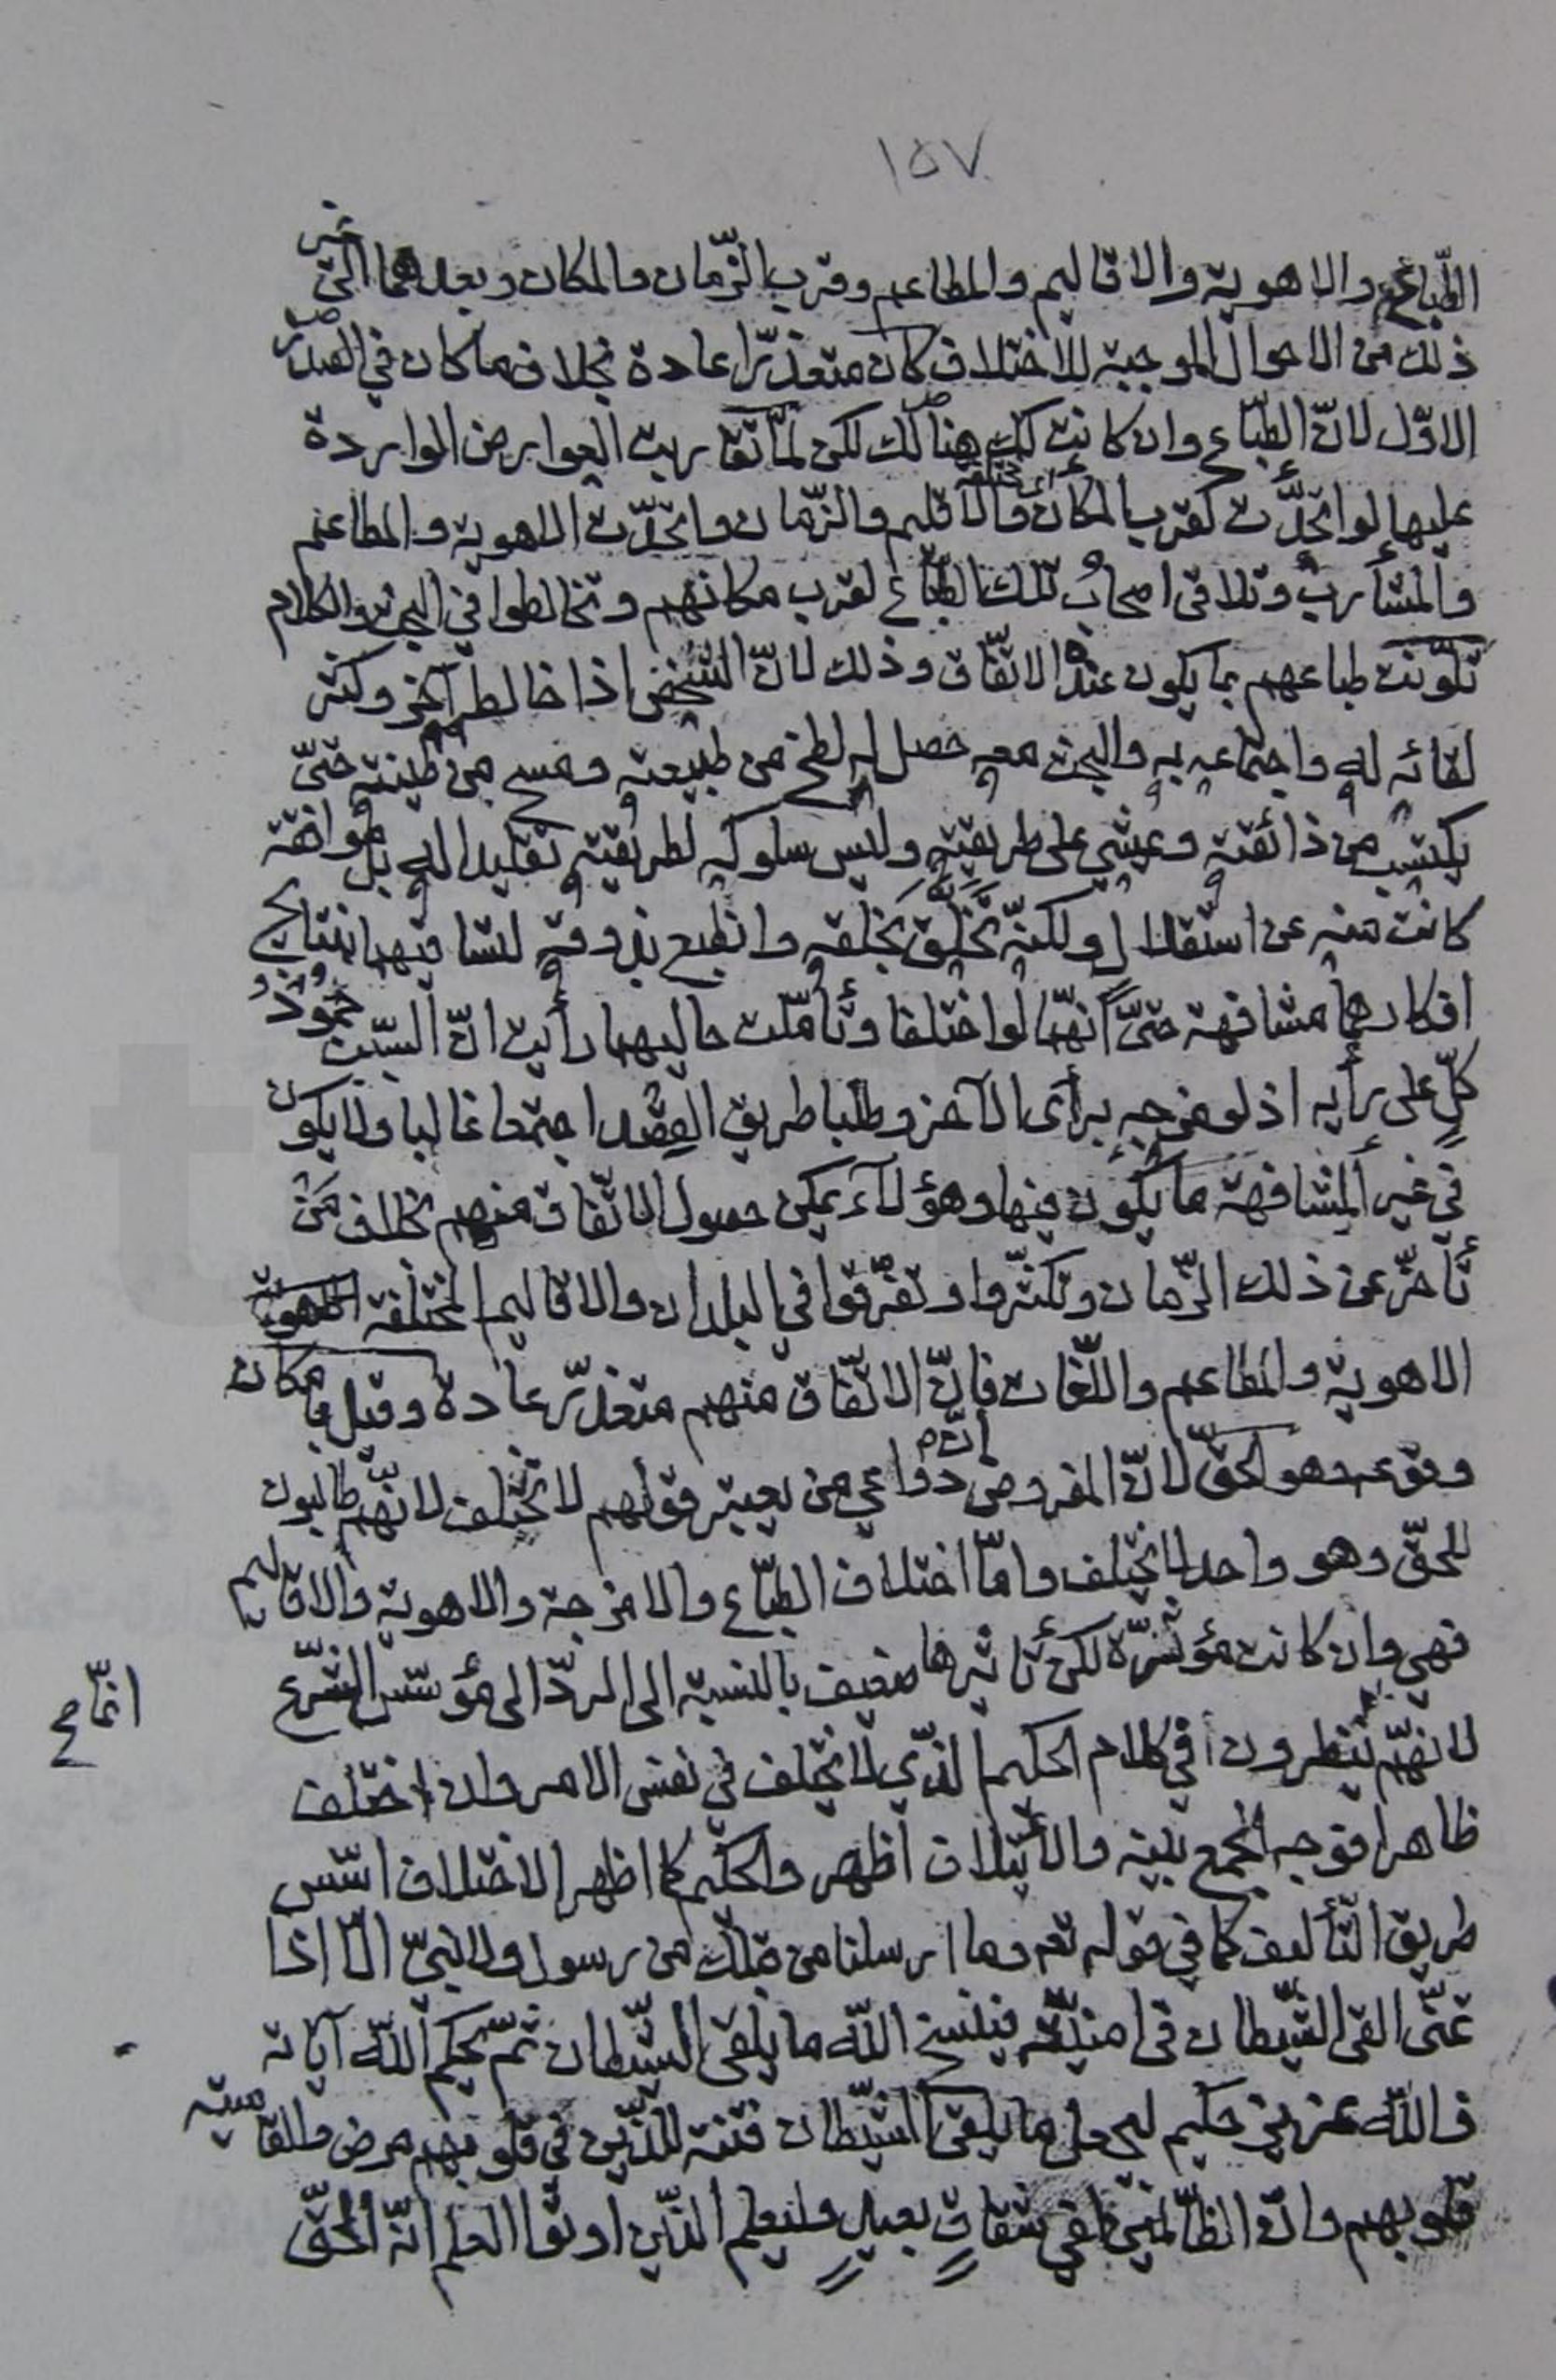 ١٥٧
الطّبائع والاهوية والاقاليم والمطاعم وقرب الزّمان والمكان وبعدهما الى غير
ذلك من الاحوال الموجبة للاختلاف كان متعذّرا عادة بخلاف ما كان في الصدر
الاوّل لانّ الطّباع وان كانت كك هنالك لكن لمّا تقاربت العوارض الواردة
عليها لو اتحدّت لقرب المكان والاقليم والزّمان واتحدّت الاهوية والمطاعم
والمشارب وتلاقى اصحاب تلك الطبّاع لقرب مكانهم وتخالطوا في البحث والكلام
تكوّنت طباعهم بما يكون عنده الاتفّاق وذلك لانّ الشخص اذا خالط آخر وكثر
لقائه له واجتماعه به والبحث معه حصل له لطخ من طبيعته ومسح من طينته حتىّ
يكتسب من ذائقته ويمشي على طريقته وليس سلوكه لطريقته تقليدا له بل موافقة
كانت منه عن استقلال ولكنّه تخلّق بخلقه وانطبع بذوقه لتساقيهما بنتايج
افكارهما مشافهة حتىّ انهّما لو اختلفا وتأمّلت حاليهما رأيت انّ السّبب جمود
كلٍّ على رأيه اذ لو مزجه برأى الآخر وطلبا طريق القصد اجتمعا غالبا ولا يكون
في غير المشافهة ما يكون فيها وهؤلآء يمكن حصول الاتّفاق منهم بخلاف من
تأخّر عن ذلك الزّمان وتكثّروا وتفرّقوا في البلدان والاقاليم المختلفة
الاهوية والمطاعم واللّغات فانّ الاتّفاق منهم متعذّر عادة وقيل بامكان
وقوعه وهو الحقّ لانّ المفروض انّ دواعي من يعتبر قولهم لا تختلف لانهّم طالبون
للحقّ وهو واحد لا يختلف وامّا اختلاف الطبّاع والامزجة والاهوية والاقاليم
فهي وان كانت مؤثّرة لكن تأثيرها ضعيف بالنسبة الى الردّ الى مؤسّس الشّرع
لانهّم ينظرون في كلام الحكيم الذّي لا يختلف في نفس الامر وان اختلف
انمّا ح
ظاهرا فوجه الجمع بينه والائتلاف اظهر والحكيم كما اظهر الاختلاف اسّس
طريق التّأليف كما في قوله تعم وما ارسلنا من قبلك من رسول ولا نبيّ الّا اذا
تمنّى القى الشّيطان في امنيّته فينسخ اللّه ما يلقى الشّيطان ثمّ يحكم اللّه آياته
واللّه عزيز حكيم ليجعل ما يلقى الشّيطان فتنة للذّين في قلوبهم مرض والقاسية
قلوبهم وانّ الظّالمين لفي شقاقٍ بعيدٍ وليعلم الذّين اوتوا العلم انّه الحقّ